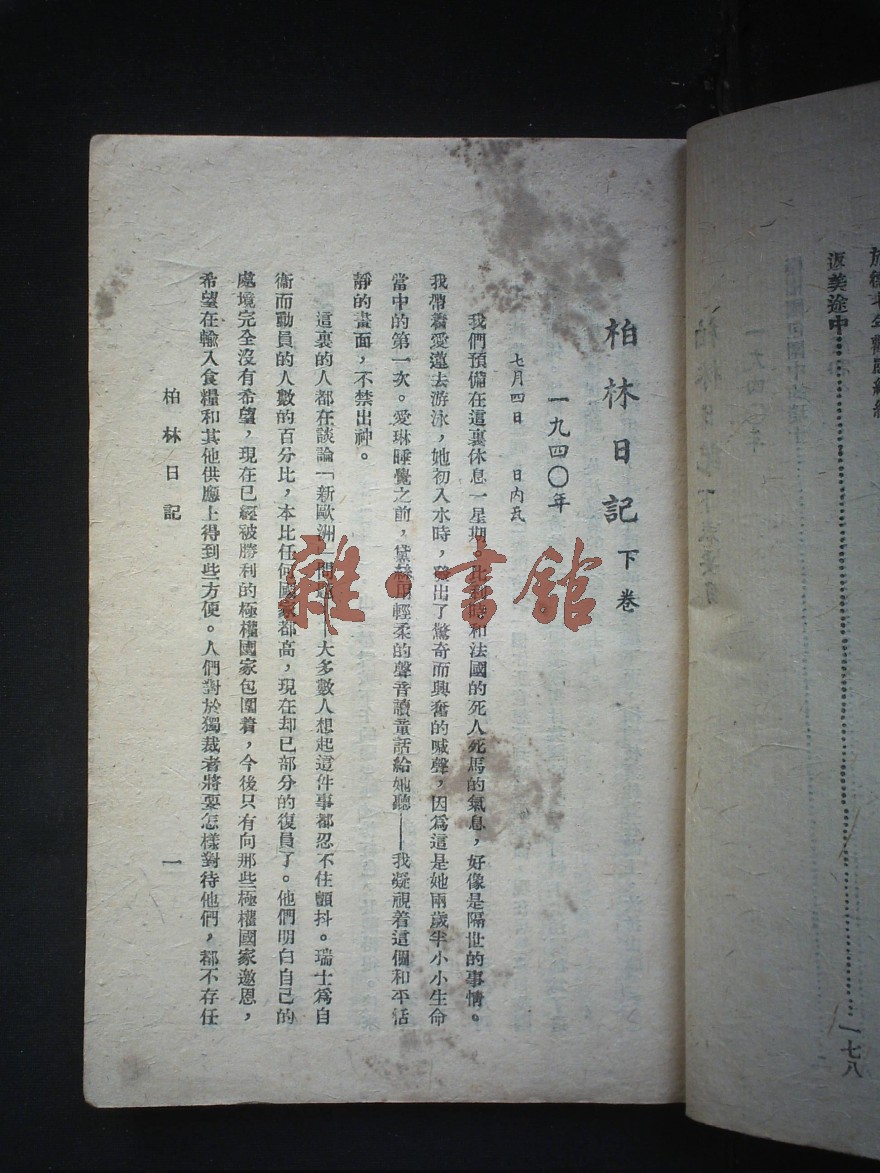 返美途中
一七八
柏林日記 下卷
一九四〇年
七月四日 日內瓦
我們預備在這裏休息一星期。比利時和法國的死人死馬的氣息，好像是隔世的事情。
我帶着愛蓮去游泳，她初入水時，發出了驚奇而興奮的喊聲，因爲這是她兩歲半小小生命
當中的第一次。愛琳睡覺之前，黛絲用輕柔的聲音讀童話給她聽——我凝視着這個和平活
靜的畫面，不禁出神。
這裏的人都在談論「新歐洲」問題——大多數人想起這件事都忍不住顫抖。瑞士爲自
衞而動員的人數的百分比，本比任何國家都高，現在却已部分的復員了。他們明白自己的
處境完全沒有希望，現在已經被勝利的極權國家包圍着，今後只有向那些極權國家邀恩，
希望在輸入食糧和其他供應上得到些方便。人們對於獨裁者將要怎樣對待他們，都不存任
柏林日記
一
雜·書館